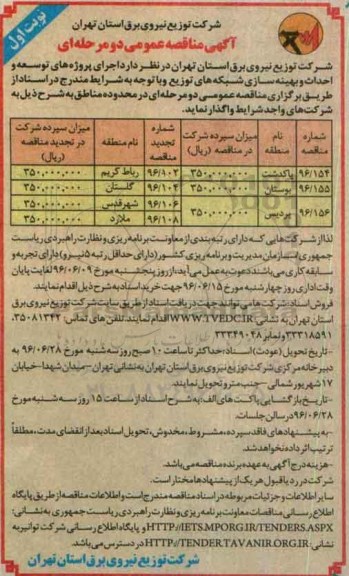 نوبت اول
شرکت توزیع نیروی برق استان تهران
آگهی مناقصه عمومی دو مرحله ای
شرکت توزیع نیروی برق استان تهران در نظر دارد اجرای پروژه های توسعه و
احداث و بهینه سازی شبکه های توزیع و با توجه به شرایط مندرج در اسناد از
طریق برگزاری مناقصه عمومی دو مرحله ای در محدوده مناطق به شرح ذیل به
شرکت های واجد شرایط واگذار نماید.
شماره مناقصه | نام منطقه | میزان سپرده شرکت در مناقصه (ریال) | شماره تجدید مناقصه | نام منطقه | میزان سپرده شرکت در تجدید مناقصه (ریال)
۹۶/۱۵۴ | پاکدشت | ۳۵۰,۰۰۰,۰۰۰ | ۹۶/۱۰۲ | رباط کریم | ۳۵۰,۰۰۰,۰۰۰
۹۶/۱۵۵ | بوستان | ۳۵۰,۰۰۰,۰۰۰ | ۹۶/۱۰۴ | گلستان | ۳۵۰,۰۰۰,۰۰۰
۹۶/۱۵۶ | پردیس | ۳۵۰,۰۰۰,۰۰۰ | ۹۶/۱۰۶ | شهرقدس | ۳۵۰,۰۰۰,۰۰۰
۹۶/۱۰۸ | ملارد | ۳۵۰,۰۰۰,۰۰۰
لذا از شرکت هایی که دارای رتبه بندی از معاونت برنامه ریزی و نظارت راهبردی ریاست
جمهوری (سازمان مدیریت و برنامه ریزی کشور (دارای حداقل رتبه ۵ نیرو) دارای تجربه و
سابقه کاری می باشند دعوت به عمل می آید، از روز پنجشنبه مورخ ۹۶/۰۶/۰۹ لغایت پایان
وقت اداری روز چهارشنبه مورخ ۹۶/۰۶/۱۵ جهت خرید اسناد به شرح ذیل اقدام نمایند.
فروش اسناد: شرکت ها می توانند جهت دریافت اسناد از طریق سایت شرکت توزیع نیروی برق
استان تهران به نشانی: WWW.TVEDC.IR اقدام نمایند. تلفن های تماس: ۳۵۰۸۱۳۴۲،
۳۳۳۱۸۵۹۱ و نمابر ۳۳۳۴۹۰۴۸
-تاریخ تحویل (عودت) اسناد: حداکثر تا ساعت ۱۰ صبح روز سه شنبه مورخ ۹۶/۰۶/۲۸ به
دبیرخانه مرکزی شرکت توزیع نیروی برق استان تهران به نشانی تهران-میدان شهدا-خیابان
۱۷ شهریور شمالی-جنب مترو تحویل نمایند.
-تاریخ بازگشایی پاکت های الف، به شرح اسناد از ساعت ۱۵ روز سه شنبه مورخ
۹۶/۰۶/۲۸ در سالن جلسات.
-به پیشنهادهای فاقد سپرده، مشروط، مخدوش، تحویل اسناد بعد از انقضای مدت، مطلقاً
ترتیب اثر داده نخواهد شد.
-هزینه درج آگهی به عهده برنده مناقصه می باشد.
شرکت در رد یا قبول هر یک از پیشنهادها مختار است.
سایر اطلاعات و جزئیات مربوطه در اسناد مناقصه مندرج است و اطلاعات مناقصه از طریق پایگاه
اطلاع رسانی مناقصات معاونت برنامه ریزی و نظارت راهبردی ریاست جمهوری به نشانی:
HTTP//IETS.MPORG.IR/TENDERS.ASPX و پایگاه اطلاع رسانی شرکت توانیر به
نشانی: HTTP://TENDER.TAVANIR.ORG.IR در دسترس می باشد.
شرکت توزیع نیروی برق استان تهران